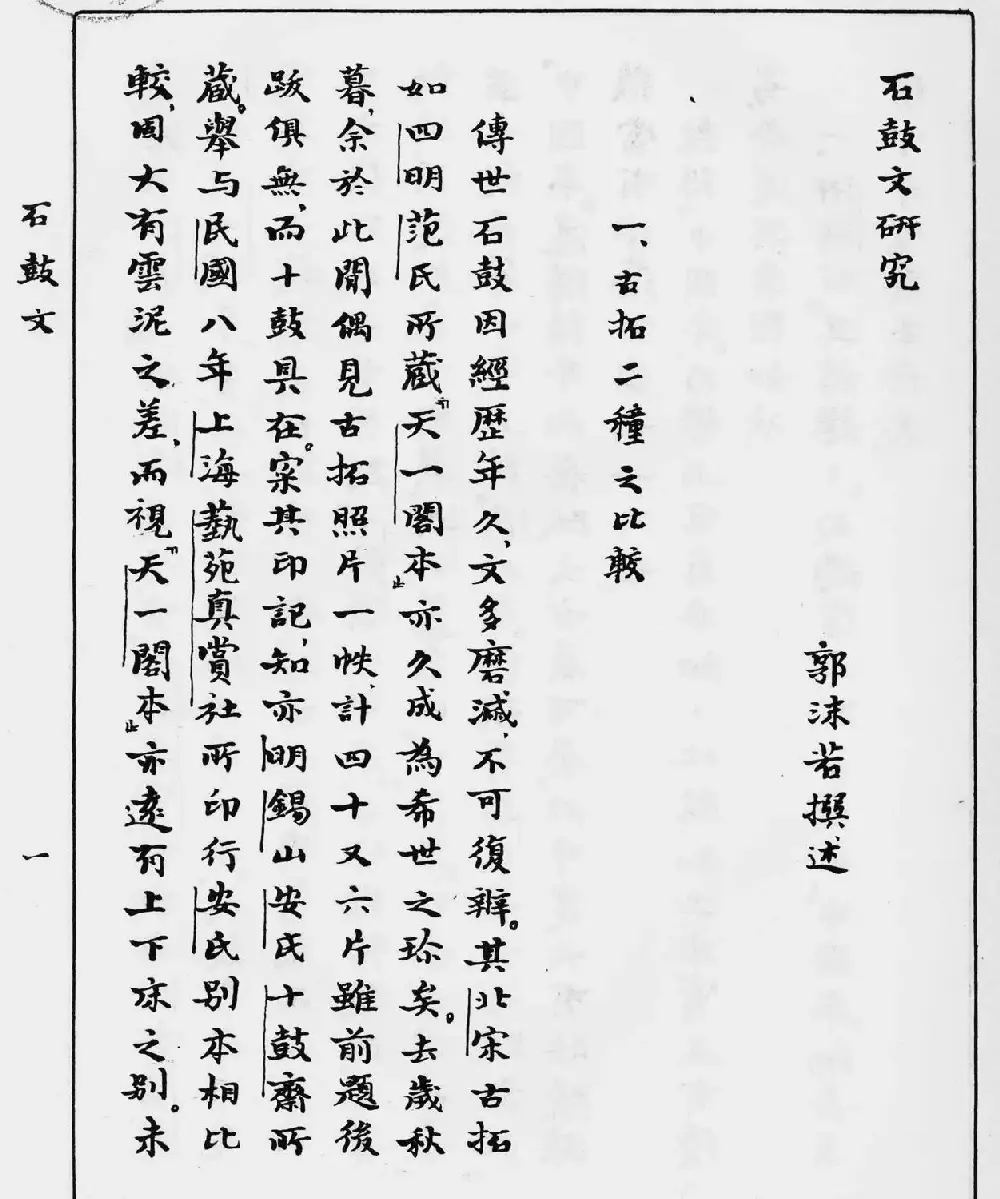 石鼓文研究
郭沫若撰述
一、古拓二種之比較
傳世石鼓因經歷年久、文多磨滅、不可復辨。其北宋古拓
如四明范氏所藏「天一閣本」亦久成為希世之珍矣。去歲秋
暮、余於此間偶見古拓照片一帙、計四十又六片雖前題後
跋俱無、而十鼓具在。案其印記、知亦明錫山安氏十鼓齋所
藏。舉与民國八年上海藝苑真賞社所印行安氏别本相比
較、固大有雲泥之差、而視「天一閣本」亦遠有上下床之别。未
石鼓文
一